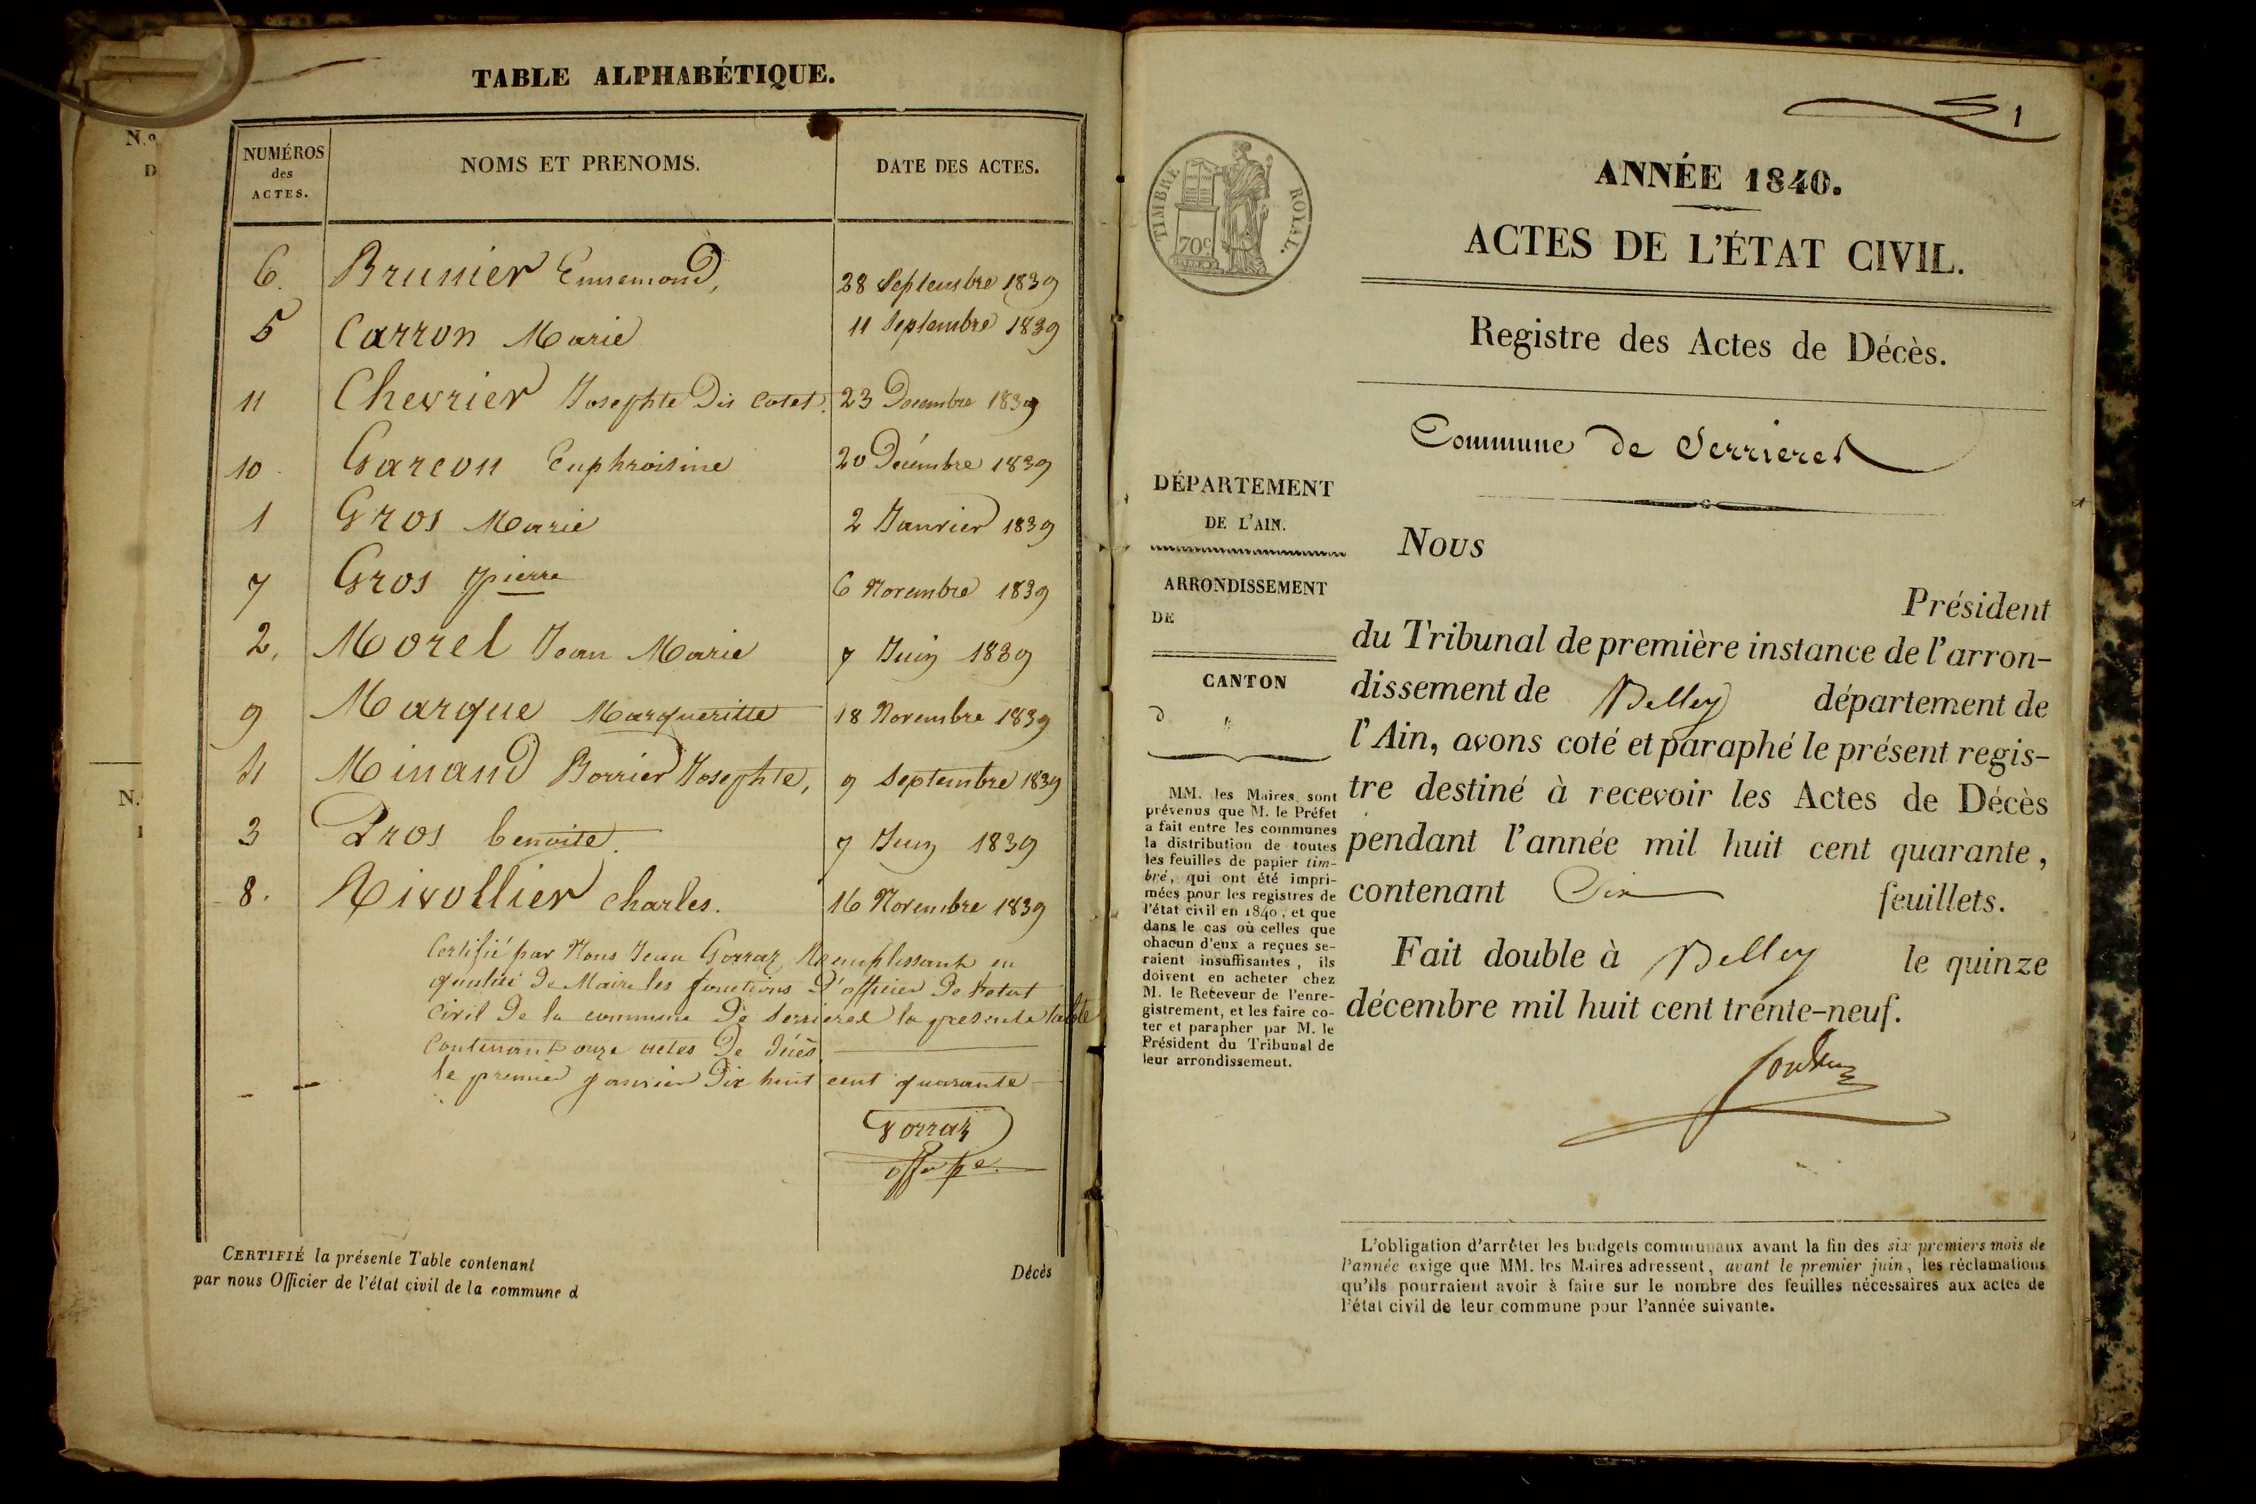 TABLE ALPHABÉTIQUE.
NUMÉROS des ACTES. NOMS ET PRENOMS. DATE DES ACTES.
6. Brunier Ennemond, 28 Septembre 1839
5 Carron Marie 11 Septembre 1839
11 Chevrier Josephte Dis Cotet. 23 Decembre 1839
10 Garcon Euphroisine 20 Décembre 1839
1 Gros Marie 2 Janvier 1839
7 Gros pierre 6 Novembre 1839
2. Morel Jean Marie 7 Juin 1839
9 Marque Margueritte 18 Novembre 1839
4 Minand Borrier Josephte, 9 Septembre 1839
3 Pros benoite. 7 Juin 1839
8. Rivollier Charles. 16 Novembre 1839
Certifié par Nous Jean Gorraz Remplissant en
qualité de Maire les fonctions d'officier de l'etat
Civil de la commune de Serrieres la presente table
Contenant onze actes de décès
le premier janvier dix huit cent quarante
Gorraz
CERTIFIÉ la présente Table contenant Décès
par nous Officier de l'état civil de la commune d
N.º
D
N.
1
ANNÉE 1840.
ACTES DE L'ÉTAT CIVIL.
Registre des Actes de Décès.
Commune de Serrieres
TIMBRE ROYAL.
70c
DÉPARTEMENT
DE L'AIN.
ARRONDISSEMENT
DE
CANTON
d
MM. les Maires sont
prévenus que M. le Préfet
a fait entre les communes
la distribution de toutes
les feuilles de papier tim-
bré, qui ont été impri-
mées pour les registres de
l'état civil en 1840, et que
dans le cas où celles que
chacun d'eux a reçues se-
raient insuffisantes, ils
doivent en acheter chez
M. le Receveur de l'enre-
gistrement, et les faire co-
ter et parapher par M. le
Président du Tribunal de
leur arrondissement.
Nous
Président
du Tribunal de première instance de l'arron-
dissement de Belley département de
l'Ain, avons coté et paraphé le présent regis-
tre destiné à recevoir les Actes de Décès
pendant l'année mil huit cent quarante,
contenant Six feuillets.
Fait double à Belley le quinze
décembre mil huit cent trente-neuf.
L'obligation d'arrêter les budgets communaux avant la fin des six premiers mois de
l'année exige que MM. les Maires adressent, avant le premier juin, les réclamations
qu'ils pourraient avoir à faire sur le nombre des feuilles nécessaires aux actes de
l'état civil de leur commune pour l'année suivante.
1